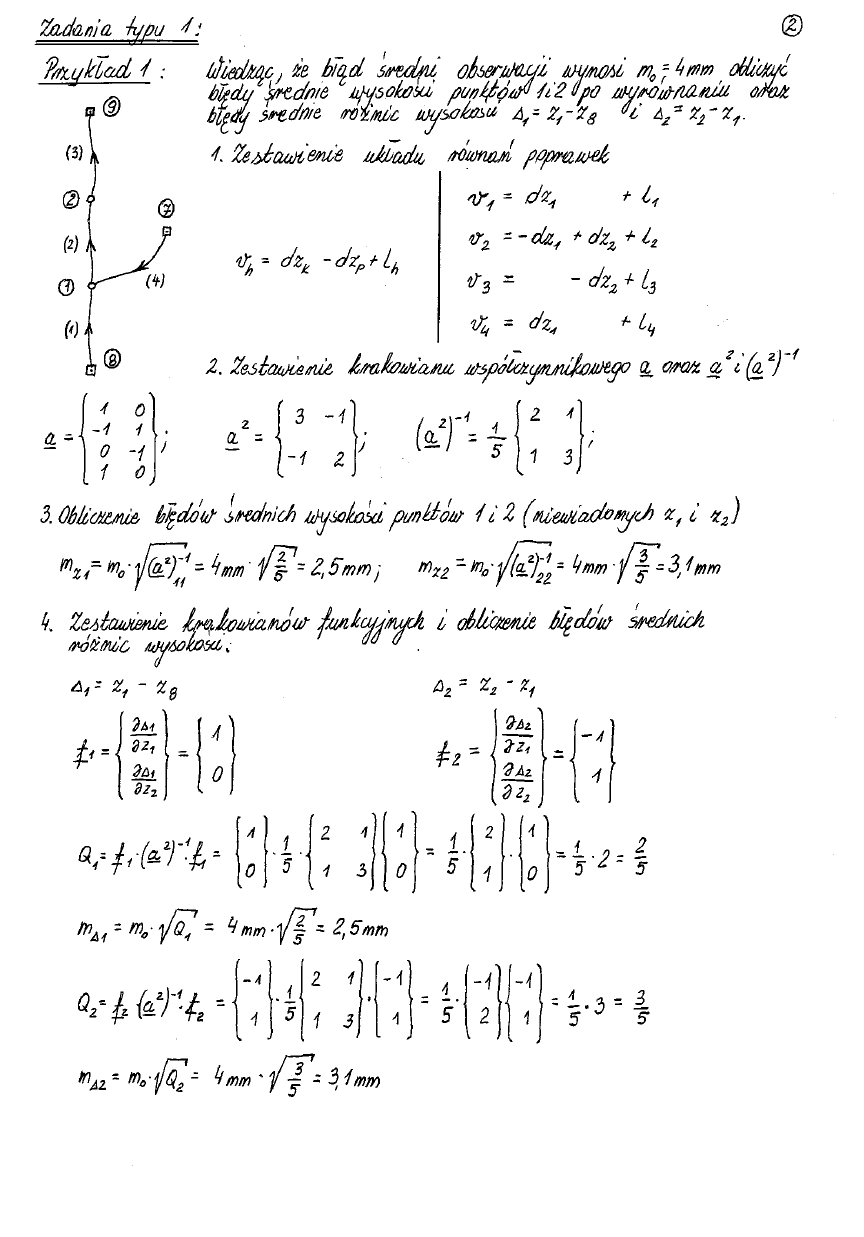 Zadania typu 1:
②
Przykład 1 : Wiedząc, że błąd średni obserwacji wynosi m₀ = 4mm obliczyć
błędy średnie wysokości punktów 1 i 2 po wyrównaniu oraz
błędy średnie różnic wysokości Δ₁ = z₁ - z₈ i Δ₂ = z₂ - z₁.
⑨
(3)
②
⑦
(2)
①
(4)
(1)
⑧
1. Zestawienie układu równań poprawek
v_h = dz_k - dz_p + l_h
v₁ = dz₁ + l₁
v₂ = -dz₁ + dz₂ + l₂
v₃ = - dz₂ + l₃
v₄ = dz₁ + l₄
2. Zestawienie krakowianu współczynnikowego a oraz a² i (a²)⁻¹
a = {1 0; -1 1; 0 -1; 1 0}; a² = {3 -1; -1 2}; (a²)⁻¹ = 1/5 {2 1; 1 3};
3. Obliczenie błędów średnich wysokości punktów 1 i 2 (niewiadomych z₁ i z₂)
m_z1 = m₀·√(a²)⁻¹₁₁ = 4mm·√2/5 = 2,5mm; m_z2 = m₀·√(a²)⁻¹₂₂ = 4mm·√3/5 = 3,1mm
4. Zestawienie krakowianów funkcyjnych i obliczenie błędów średnich
różnic wysokości:
Δ₁ = z₁ - z₈ Δ₂ = z₂ - z₁
f₁ = {∂Δ1/∂z₁; ∂Δ1/∂z₂} = {1; 0} f₂ = {∂Δ2/∂z₁; ∂Δ2/∂z₂} = {-1; 1}
Q₁ = f₁·(a²)⁻¹·f₁ = {1; 0}·1/5·{2 1; 1 3}{1; 0} = 1/5·{2; 1}·{1; 0} = 1/5·2 = 2/5
m_Δ1 = m₀·√Q₁ = 4mm·√2/5 = 2,5mm
Q₂ = f₂·(a²)⁻¹·f₂ = {-1; 1}·1/5{2 1; 1 3}·{-1; 1} = 1/5·{-1; 2}{-1; 1} = 1/5·3 = 3/5
m_Δ2 = m₀·√Q₂ = 4mm·√3/5 = 3,1mm